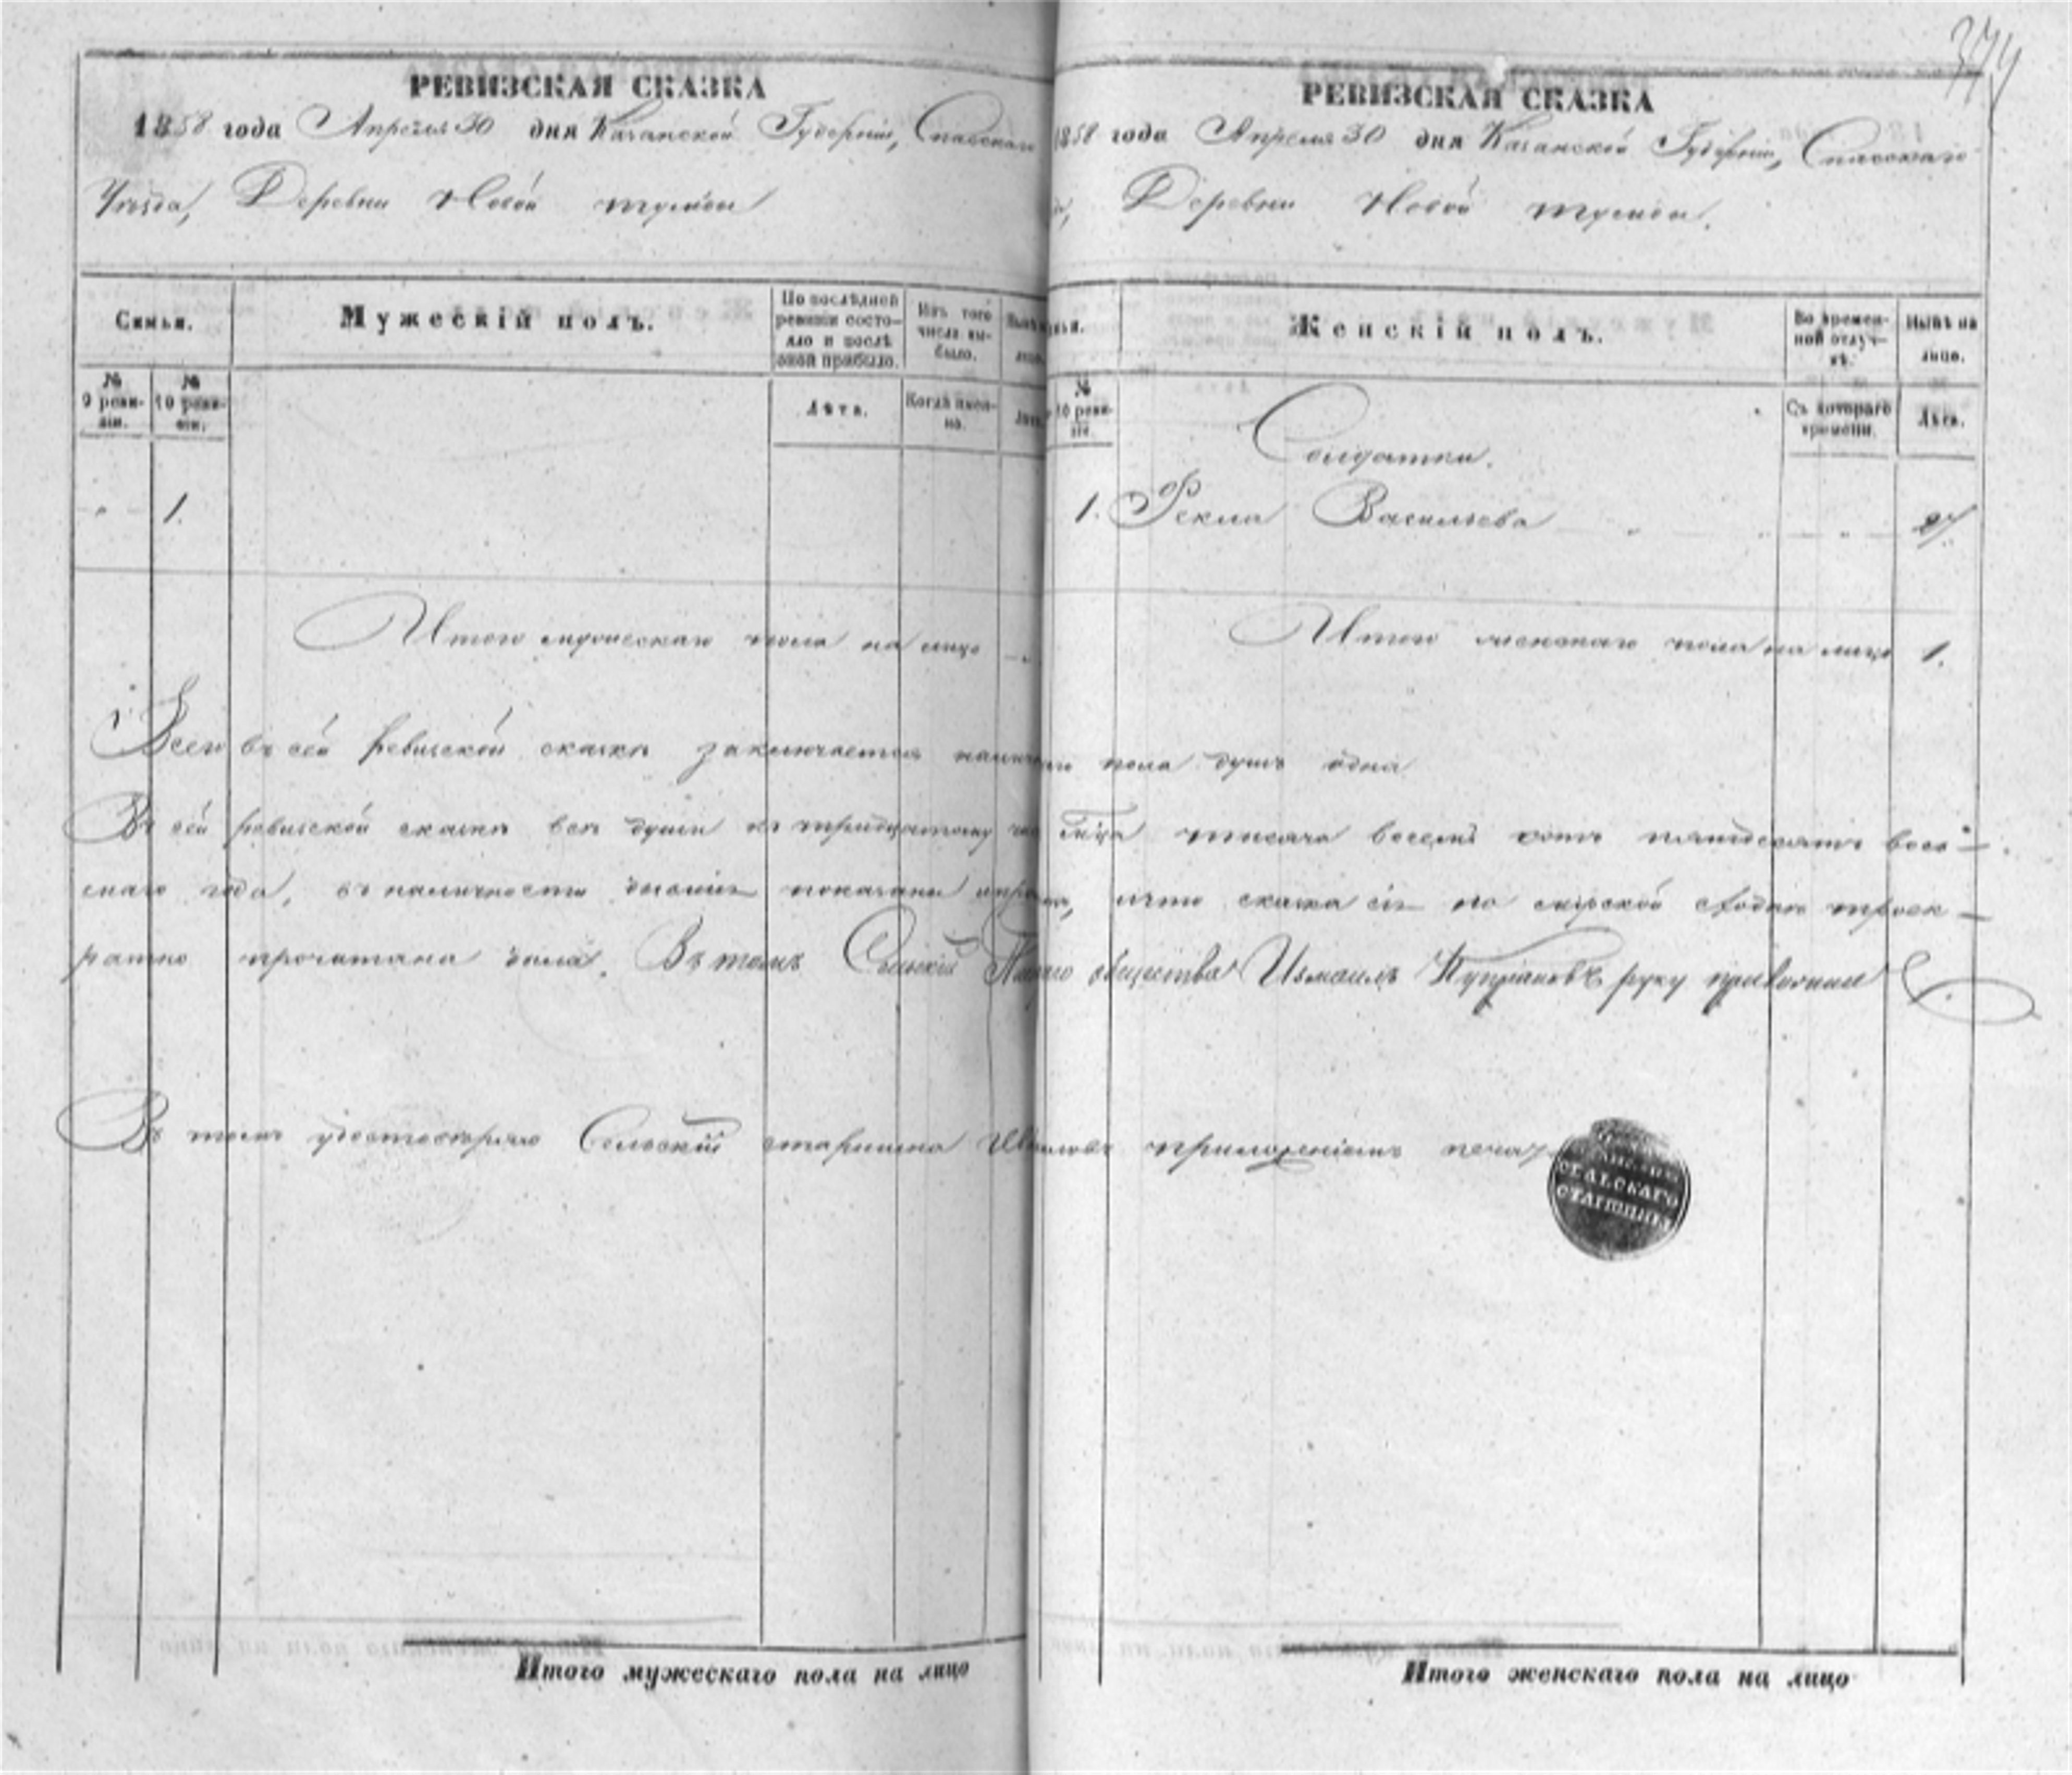 374
РЕВИЗСКАЯ СКАЗКА
1858 года Апреля 30 дня Казанской Губернiи, Спаскаго
Уезда, Деревни Новой
Семьи.
Мужескiй полъ.
По послѣдней ревизiи состояло и послѣ оной прибыло.
Изъ того числа выбыло.
№ 9 ревизiи.
№ 10 ревизiи.
Лѣта.
Когда именно.
1.
Итого мужескаго пола на лицо
РЕВИЗСКАЯ СКАЗКА
1858 года Апреля 30 дня Казанской Губернiи, Спаскаго
Деревни Новой
Женскiй полъ.
Во временной отлучкѣ.
Нынѣ на лицо.
№ 10 ревизiи.
Съ котораго времени.
Лѣта.
Солдатки.
1. Фекла Васильева 27
Итого женскаго пола на лицо 1.
Всего въ сей ревизской сказкѣ заключается пола душъ одна
Въ сей ревизской сказкѣ всѣ души къ тридцатому тысяча восемь сотъ пятьдесятъ вось
маго года, въ наличности показаны что сказка сiя на мирской сходкѣ троек
ратно прочитана была. Въ томъ общества Измаилъ руку приложилъ
Въ томъ удостоверяю Сельскiй старшина приложенiемъ печати
СЕЛЬСКАГО
СТАРШИНЫ
Итого мужескаго пола на лицо
Итого женскаго пола на лицо